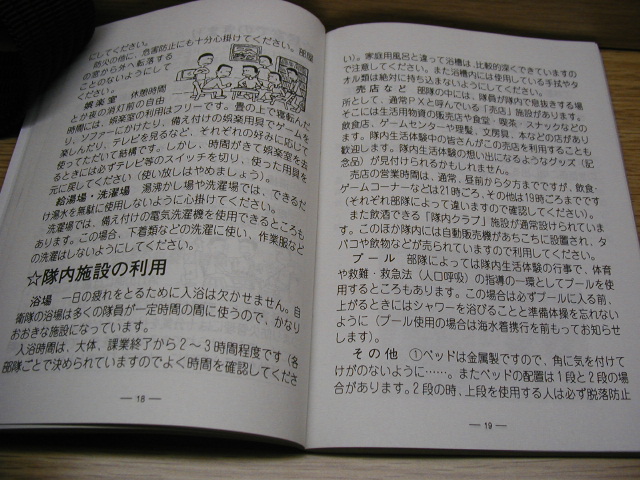 にしてください。
防火の他に、危害防止にも十分心掛けてください。部屋
の窓から外へ転落する
ことのないようにして
ください。
娯楽室　休憩時間
とか夜の消灯前の自由
時間には、娯楽室の利用はフリーです。畳の上で寝転んだ
り、ソファーにかけたり、備え付けの娯楽用具でゲームを
楽しんだり、テレビを見るなど、それぞれの好みに応じて
使ってただいて結構です。しかし、時間がきて娯楽室を去
るときには必ずテレビ等のスイッチを切り、使った用具を
元に戻してください（使い放しはやめましょう）。
給湯場・洗濯場　湯沸かし場や洗濯場では、できるだ
け湯水を無駄に使用しないように心掛けてください。
洗濯場では、備え付けの電気洗濯機を使用できるところも
あります。この場合、下着類などの洗濯に使い、作業服など
の洗濯はしないようにしてください。
☆隊内施設の利用
浴場　一日の疲れをとるために入浴は欠かせません。自
衛隊の浴場は多くの隊員が一定時間の間に使うので、かなり
おおきな施設になっています。
入浴時間は、大体、課業終了から２〜３時間程度です（各
部隊ごとで決められていますのでよく時間を確認してくださ
— 18 —
い）。家庭用風呂と違って浴槽は、比較的深くできていますの
で注意してください。また浴槽内には使用している手拭やタ
オル類は絶対に持ち込まないようにしてください。
売店など　部隊の中には、隊員が隊内で息抜きする場
所として、通常ＰＸと呼んでいる「売店」施設があります。
そこには生活用物資の販売店や食堂、喫茶・スナックなどの
飲食店、ゲームセンターや理髪、文房具、本などの店があり
ます。隊内生活体験中の皆さんがこの売店を利用することも
歓迎します。隊内生活体験の想い出になるようなグッズ（記
念品）が見付けられるかもしれません。
売店の営業時間は、通常、昼前から夕方までですが、飲食・
ゲームコーナーなどは21時ころ、その他は19時ころまでです
（それぞれ部隊によって違いますので確認してください）。
また飲酒できる「隊内クラブ」施設が通常設けられていま
す。このほか隊内には自動販売機があちこちに設置され、タ
バコや飲物などが売られていますので利用してください。
プール　部隊によっては隊内生活体験の行事で、体育
や救難・救急法（人口呼吸）の指導の一環としてプールを使
用するところもあります。この場合は必ずプールに入る前、
上がるときにはシャワーを浴びることと準備体操を忘れない
ように（プール使用の場合は海水着携行を前もってお知らせ
します）。
その他　①ベッドは金属製ですので、角に気を付けて
けがのないように……。またベッドの配置は１段と２段の場
合があります。２段の時、上段を使用する人は必ず脱落防止
— 19 —